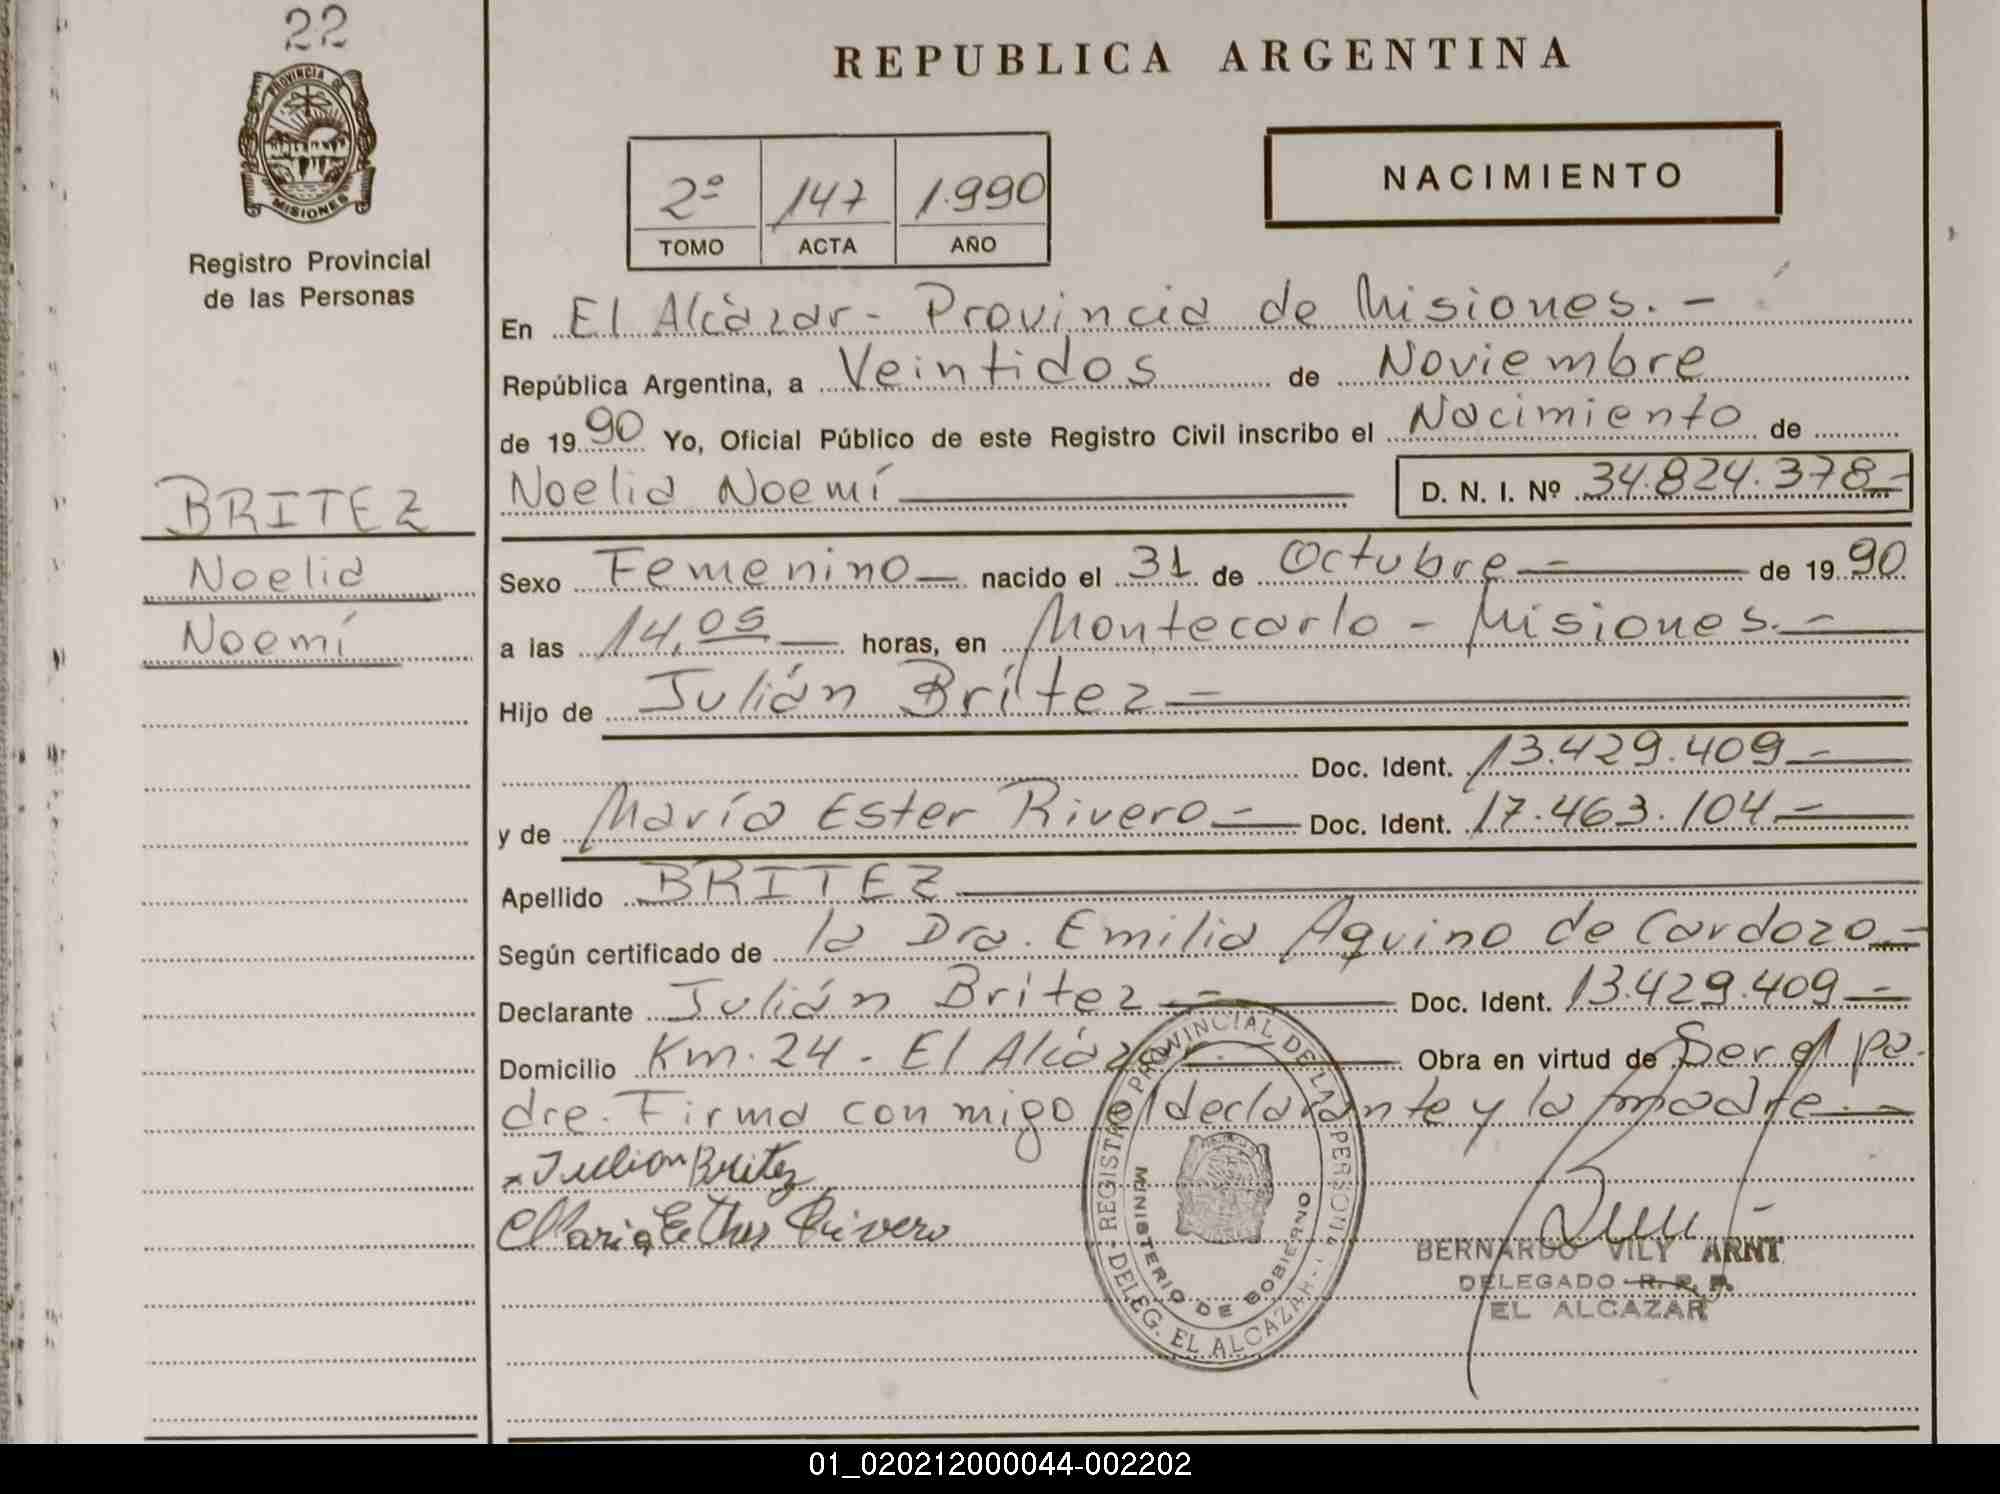 22
PROVINCIA DE
MISIONES
Registro Provincial
de las Personas
BRITEZ
Noelia
Noemí
REPUBLICA ARGENTINA
2º 147 1.990
TOMO ACTA AÑO
NACIMIENTO
En El Alcàzar - Provincia de Misiones. -
República Argentina, a Veintidos de Noviembre
de 1990 Yo, Oficial Público de este Registro Civil inscribo el Nacimiento de
Noelia Noemí D. N. I. Nº 34.824.378-
Sexo Femenino - nacido el 31 de Octubre - de 1990
a las 14,05 horas, en Montecarlo - Misiones. -
Hijo de Julián Brítez -
Doc. Ident. 13.429.409 -
y de María Ester Rivero - Doc. Ident. 17.463.104 -
Apellido BRITEZ
Según certificado de la Dra. Emilia Aquino de Cardozo -
Declarante Julián Britez - Doc. Ident. 13.429.409 -
Domicilio Km. 24 - El Alcázar. Obra en virtud de Ser el pa-
dre. Firma con migo el declarante y la madre. -
Julian Britez
Maria Esther Rivero
REGISTRO PROVINCIAL DE LAS PERSONAS
MINISTERIO DE GOBIERNO
DELEG. EL ALCAZAR
BERNARDO VILY ARNT
DELEGADO R. P. P.
EL ALCAZAR
01_020212000044-002202